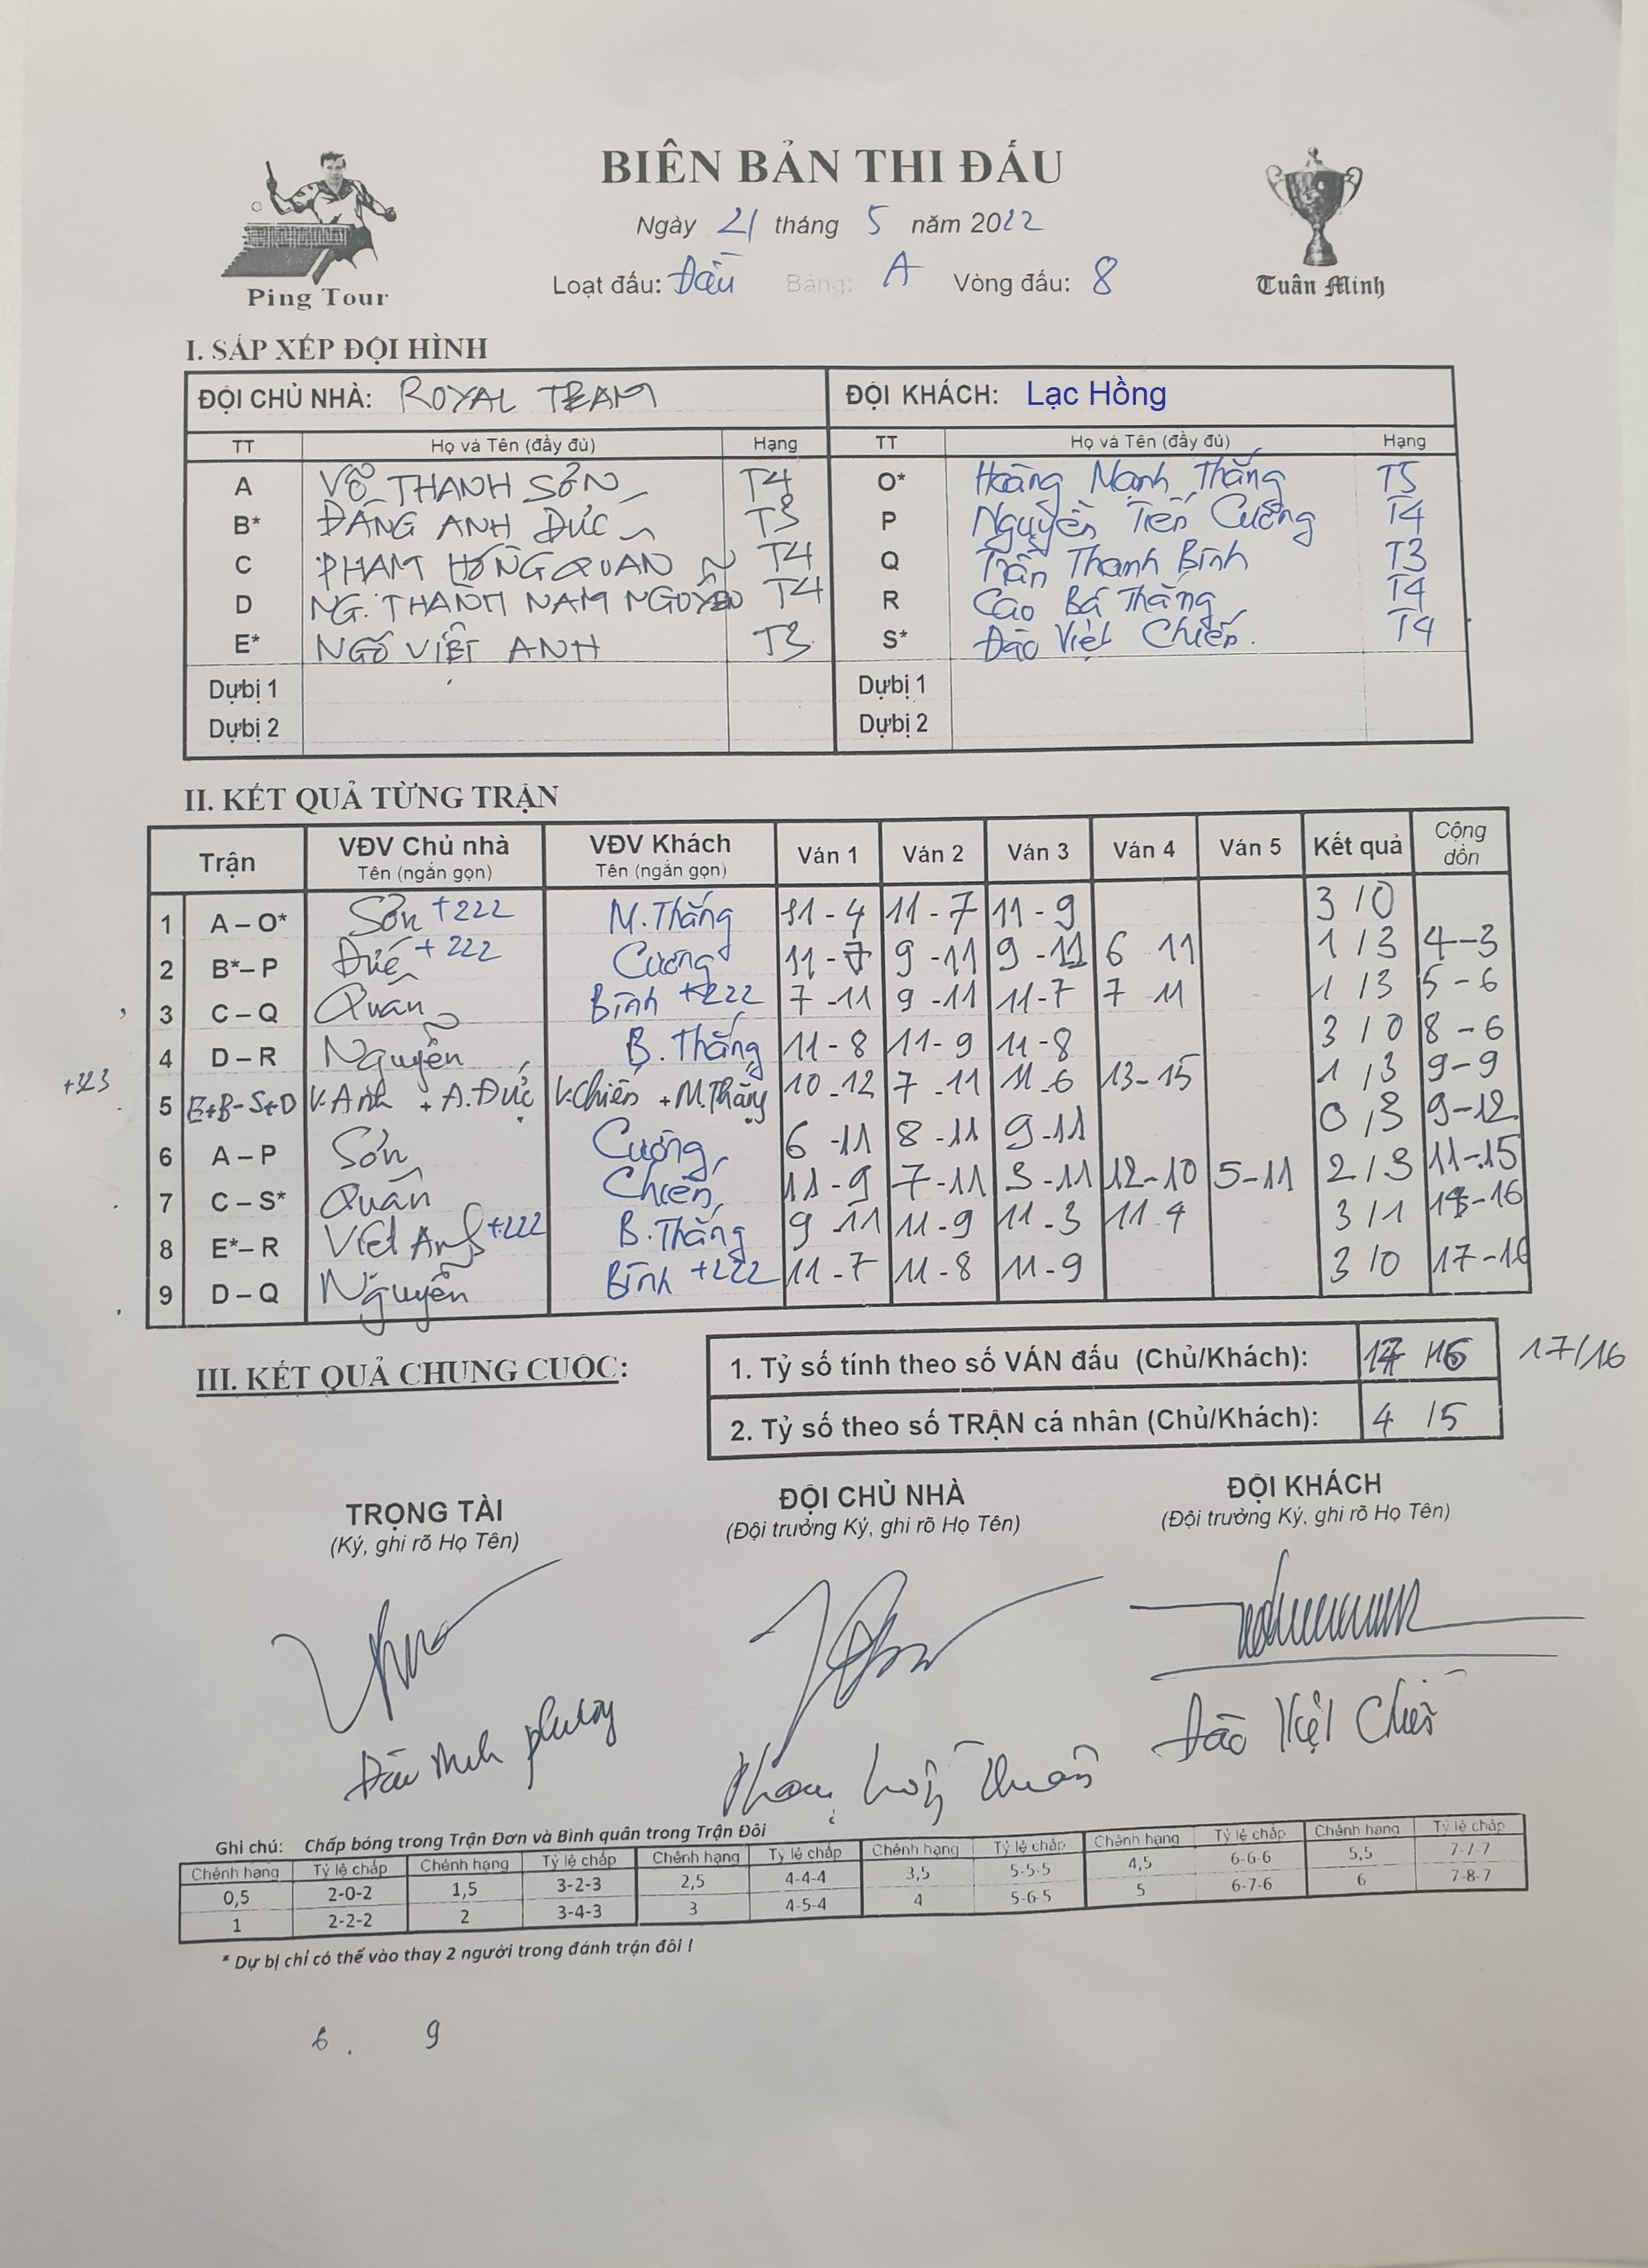 BIÊN BẢN THI ĐẤU
Ngày 21 tháng 5 năm 2022
Loạt đấu: Đầu Bảng: A Vòng đấu: 8
Ping Tour
Tuân Minh
I. SẮP XẾP ĐỘI HÌNH
ĐỘI CHỦ NHÀ: ROYAL TEAM ĐỘI KHÁCH: Lạc Hồng
TT Họ và Tên (đầy đủ) Hạng TT Họ và Tên (đầy đủ) Hạng
A VÕ THANH SƠN T4 O* Hoàng Mạnh Thắng T5
B* ĐẶNG ANH ĐỨC T3 P Nguyễn Tiến Cường T4
C PHẠM HỒNG QUÂN T4 Q Trần Thanh Bình T3
D NG. THÀNH NAM NGUYÊN T4 R Cao Bá Thắng T4
E* NGÔ VIỆT ANH T3 S* Đào Việt Chiến. T4
Dự bị 1 Dự bị 1
Dự bị 2 Dự bị 2
II. KẾT QUẢ TỪNG TRẬN
Trận VĐV Chủ nhà VĐV Khách Ván 1 Ván 2 Ván 3 Ván 4 Ván 5 Kết quả Cộng dồn
Tên (ngắn gọn) Tên (ngắn gọn)
1 A – O* Sơn +222 M. Thắng 11 - 4 11 - 7 11 - 9 3 / 0
2 B* – P Đức +222 Cường 11 - 7 9 - 11 9 - 11 6 11 1 / 3 4 - 3
3 C – Q Quân Bình +222 7 - 11 9 - 11 11 - 7 7 11 1 / 3 5 - 6
4 D – R Nguyên B. Thắng 11 - 8 11 - 9 11 - 8 3 / 0 8 - 6
+323 5 E+B - S+D V. Anh + A. Đức V. Chiến + M. Thắng 10 - 12 7 - 11 11 - 6 13 - 15 1 / 3 9 - 9
6 A – P Sơn Cường 6 - 11 8 - 11 9 - 11 0 / 3 9 - 12
7 C – S* Quân Chiến 11 - 9 7 - 11 3 - 11 12 - 10 5 - 11 2 / 3 11 - 15
8 E* – R Việt Anh +222 B. Thắng 9 - 11 11 - 9 11 - 3 11 4 3 / 1 - 16
9 D – Q Nguyên Bình +222 11 - 7 11 - 8 11 - 9 3 / 0 17 - 16
III. KẾT QUẢ CHUNG CUỘC:
1. Tỷ số tính theo số VÁN đấu (Chủ/Khách): 17 /16 17/16
2. Tỷ số theo số TRẬN cá nhân (Chủ/Khách): 4 /5
TRỌNG TÀI ĐỘI CHỦ NHÀ ĐỘI KHÁCH
(Ký, ghi rõ Họ Tên) (Đội trưởng Ký, ghi rõ Họ Tên) (Đội trưởng Ký, ghi rõ Họ Tên)
Phạm Hồng Quân Đào Việt Chiến
Ghi chú: Chấp bóng trong Trận Đơn và Bình quân trong Trận Đôi
Chênh hạng Tỷ lệ chấp Chênh hạng Tỷ lệ chấp Chênh hạng Tỷ lệ chấp Chênh hạng Tỷ lệ chấp Chênh hạng Tỷ lệ chấp Chênh hạng Tỷ lệ chấp
0,5 2-0-2 1,5 3-2-3 2,5 4-4-4 3,5 5-5-5 4,5 6-6-6 5,5 7-7-7
1 2-2-2 2 3-4-3 3 4-5-4 4 5-6-5 5 6-7-6 6 7-8-7
* Dự bị chỉ có thể vào thay 2 người trong đánh trận đôi !
6 . 9